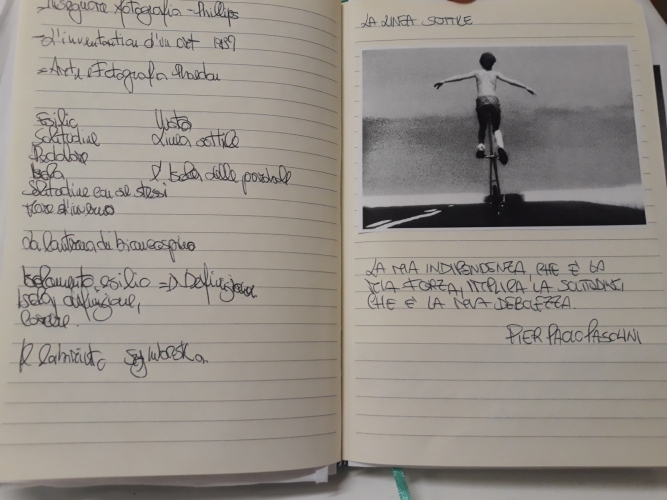 Insegnare fotografia - Phillips
- L'invention d'un art 1989
- Arte e Fotografia
Esilio Vuoto
Solitudine Linea sottile
Isola L'Isola delle
Solitudine con se stessi
da Lanterna di biancospino
Isolamento, esilio => Definizione
Isola, definizione,
Il labirinto
LA LINEA SOTTILE
LA MIA INDIPENDENZA, CHE È LA
MIA FORZA, IMPLICA LA SOLITUDINE,
CHE È LA MIA DEBOLEZZA.
PIER PAOLO PASOLINI